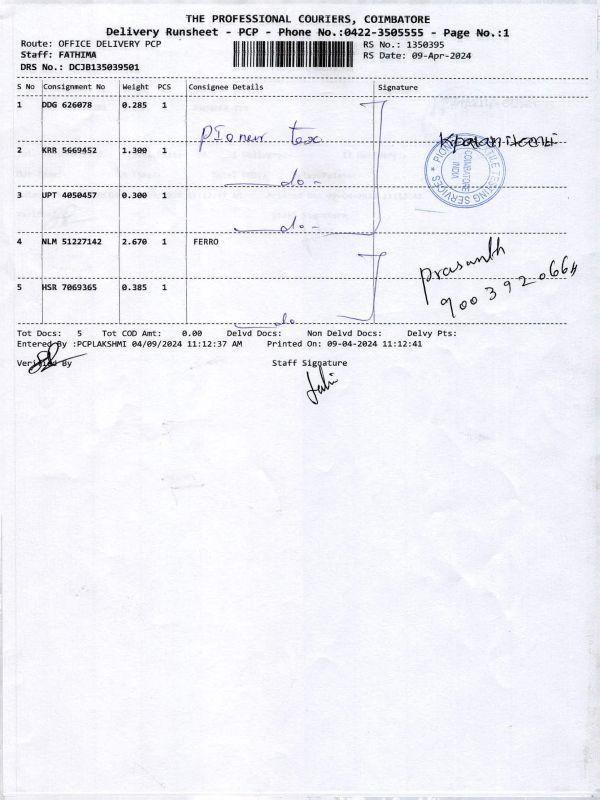 THE PROFESSIONAL COURIERS, COIMBATORE
Delivery Runsheet - PCP - Phone No.:0422-3505555 - Page No.:1
Route: OFFICE DELIVERY PCP RS No.: 1350395
Staff: FATHIMA RS Date: 09-Apr-2024
DRS No.: DCJB135039501
S No Consignment No Weight PCS Consignee Details Signature
1 DDG 626078 0.285 1
Pioneer tex
2 KRR 5669452 1.300 1
do-
3 UPT 4050457 0.300 1
do-
4 NLM 51227142 2.670 1 FERRO
Prasanth
9003920664
5 HSR 7069365 0.385 1
do
Tot Docs: 5 Tot COD Amt: 0.00 Delvd Docs: Non Delvd Docs: Delvy Pts:
Entered By :PCPLAKSHMI 04/09/2024 11:12:37 AM Printed On: 09-04-2024 11:12:41
Verified By Staff Signature